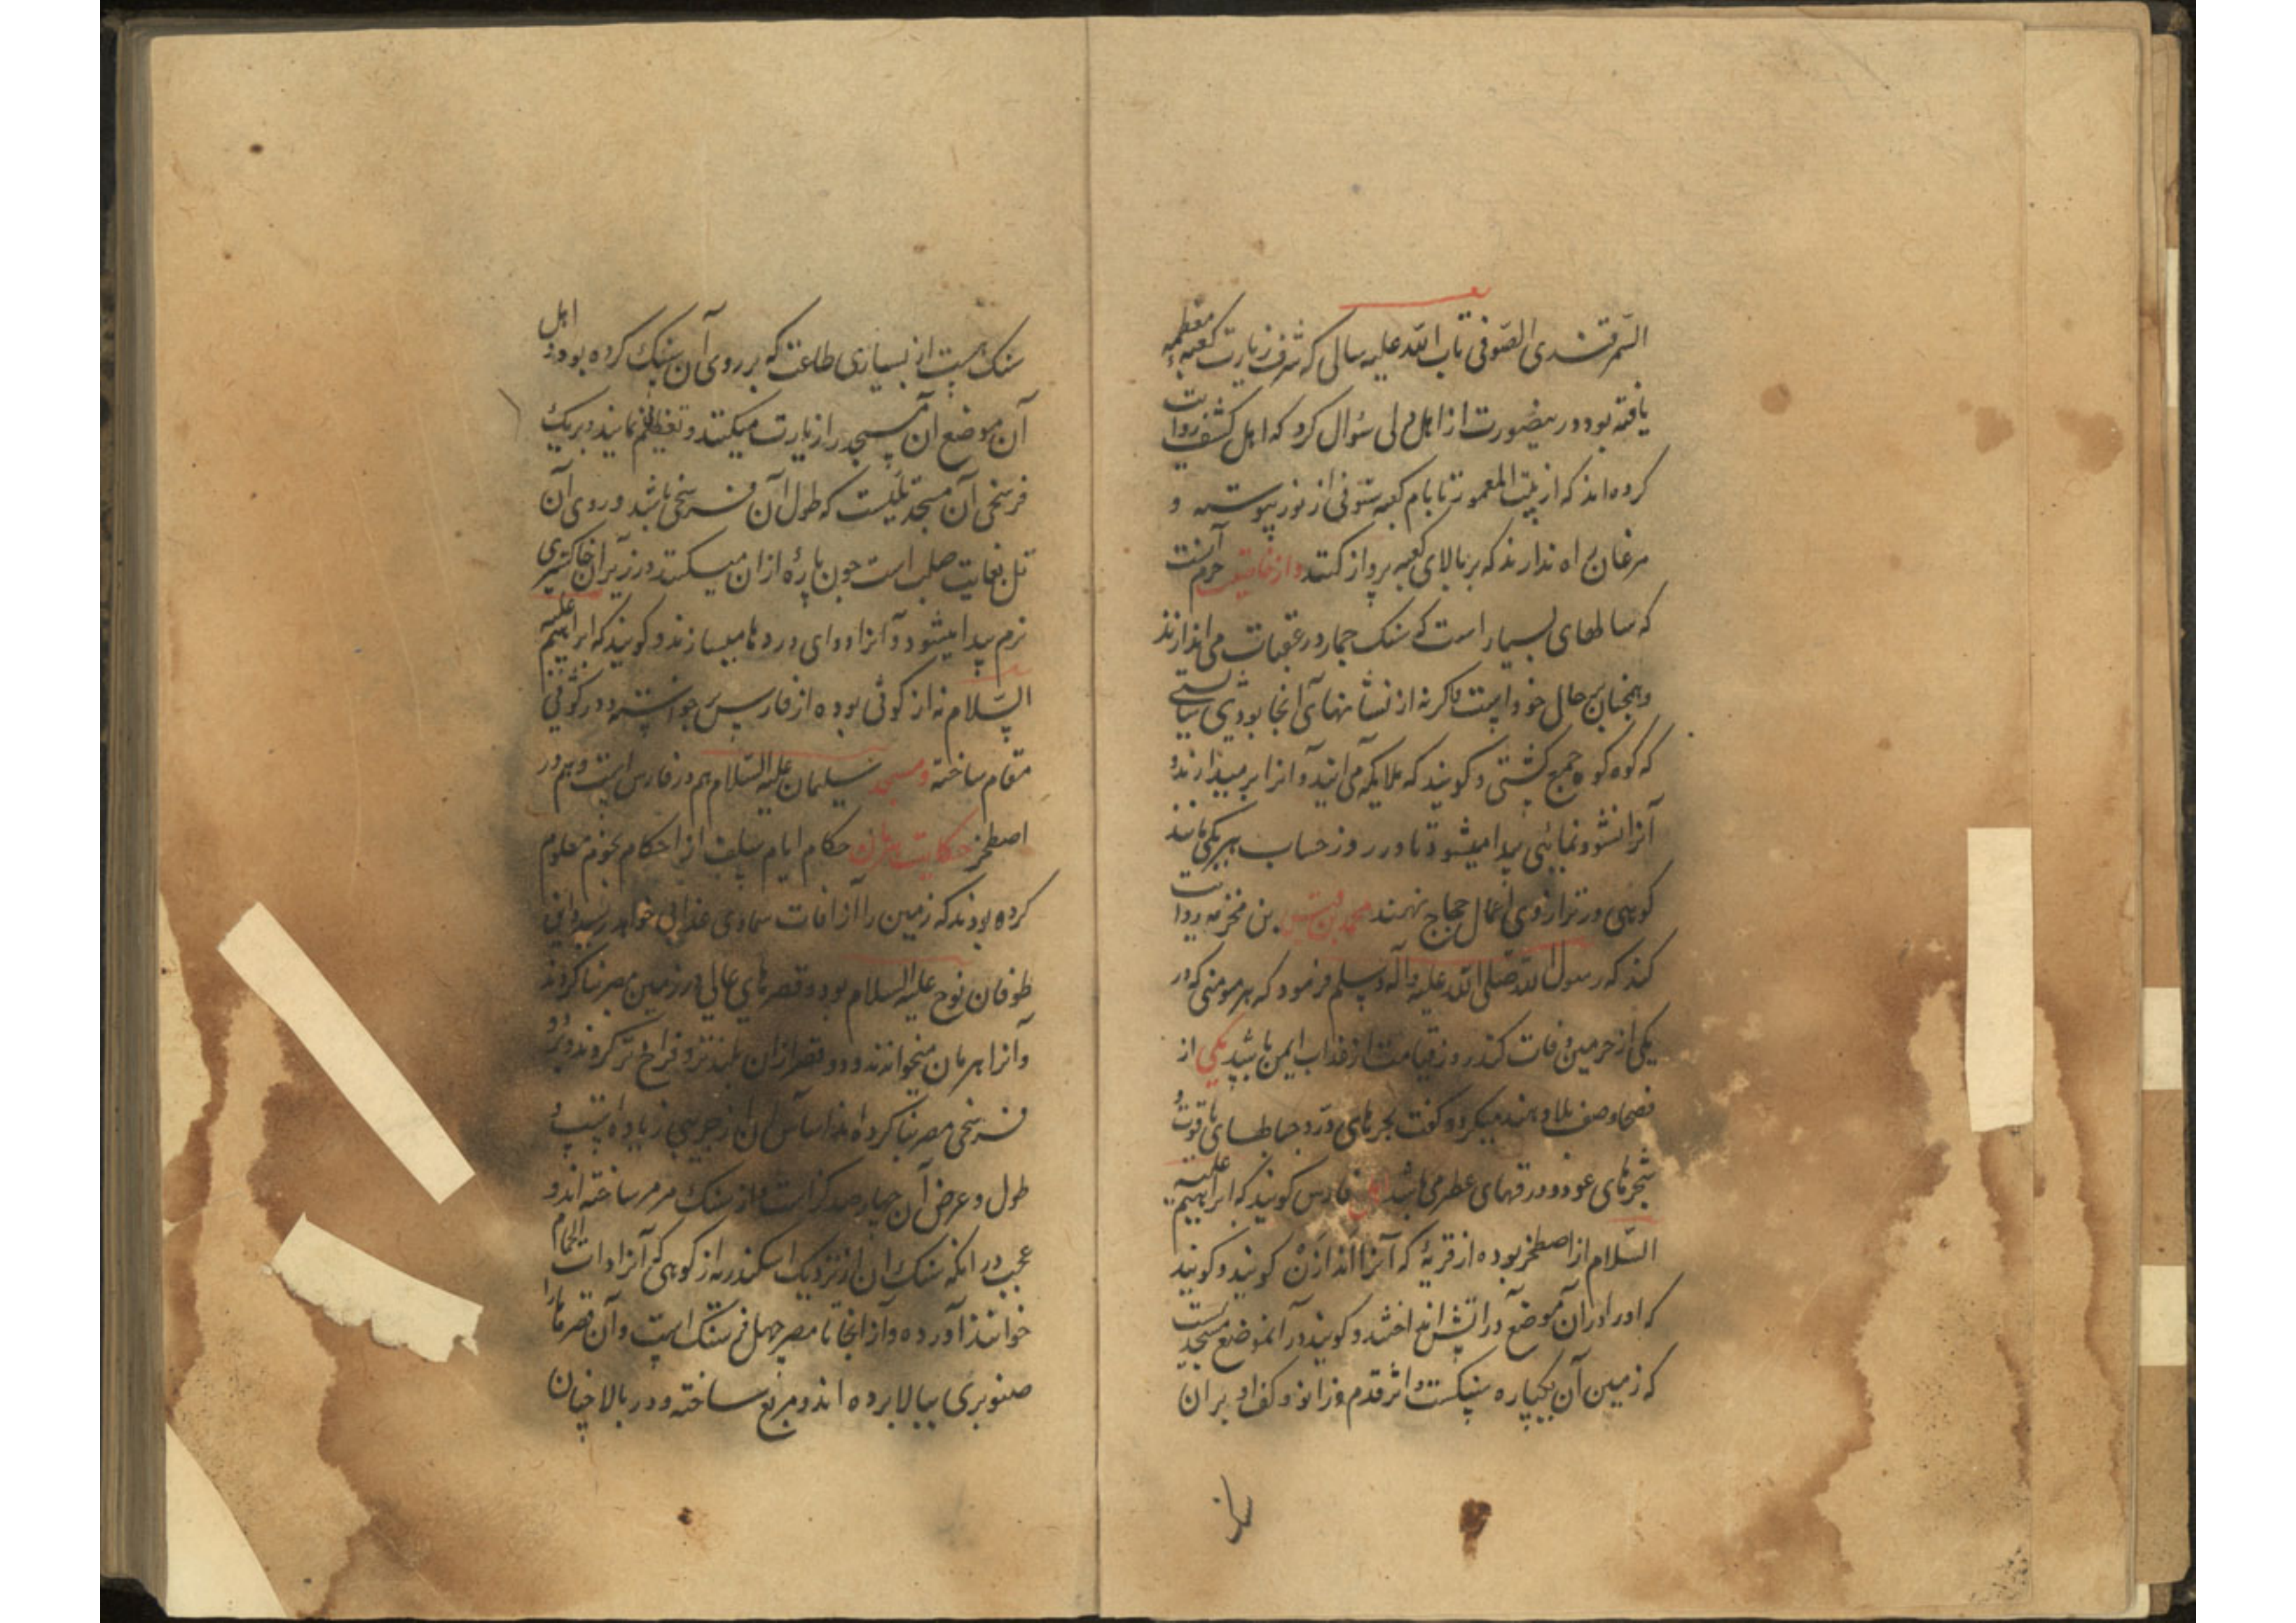 السمرقندی الصوفی تاب الله علیه سالی که شرف زیارت کعبه معظمه
یافته بود در اینصورت از اهل دلی سؤال کرد که اهل کشف روایت
کرده اند که از بیت المعمور تا بام کعبه ستونی از نور پیوسته و
مرغان راه ندارند که بر بالای کعبه پرواز کنند و از خاصیت حرم آنست
که سالهای بسیار است که سنک جمار در عقبات می اندازند
و همچنان بر حال خود است و اکر نه از نشانهای آنجا بودی بایستی
که کوه کوه جمع کشتی و کویند که ملایکه می آیند و آنرا بر میدارند و
آنرا نشو و نمائی پیدا میشود تا در روز حساب هر یکی مانند
کوهی در ترازوی اعمال حجاج نهند محمد بن قیس بن مخزمه روایت
کند که رسول الله صلی الله علیه و آله و سلم فرمود که هر مومنی که در
یکی از حرمین وفات کند روز قیامت از عذاب ایمن باشد یکی از
فصحا وصف بلاد هند میکرد و کفت بحرهای در و جبلهای یاقوت و
شجرهای عود و ورقهای عطر می باشد اهل فارس کویند که ابراهیم علیه
السلام از اصطخر بوده از قریهٔ که آنرا اندازن کویند و کویند
که او را در آن موضع در آتش انداختند و کویند در آنموضع مسجدیست
که زمین آن یکپاره سنکست و اثر قدم و زانو و کف او بر آن
سنک هست از بسیاری طاعت که بر روی آن سنک کرده بود و اهل
آن موضع آن مسجد را زیارت میکنند و تعظیم نمایند و بر یک
فرسخی آن مسجد تلیست که طول آن فرسخی باشد و روی آن
تل بغایت صلب است چون پارهٔ از آن میکنند در زیر آن خاکستری
نرم پیدا میشود و آنرا دوای دردها میسازند و کویند که ابراهیم علیه
السلام نه از کوثی بوده از فارس بر خواسته و در کوثی
مقام ساخته و مسجد سلیمان علیه السلام هم در فارس است و هم در
اصطخر حکایت هرمان حکام ایام سلف از احکام نجوم معلوم
کرده بودند که زمین را از آفات سماوی عذابی خواهد رسید و این
طوفان نوح علیه السلام بود و قصرهای عالی در زمین مصر بنا کردند
و آنرا هرمان میخوانند و دو قصر از آن بلندتر و فراخ تر کردند و بر دو
فرسخی مصر بنا کرده اند اساس آن از جریبی زیاده است و
طول و عرض آن چهار صد کز است و از سنک مرمر ساخته اند و
عجب در آنکه سنک آن از نزدیک اسکندریه از کوهی که آنرا ذات الحمام
خوانند آورده و از آنجا تا مصر چهل فرسنک است و آن قصرها را
صنوبری ببالا برده اند و مربع ساخته و در بالا چنان